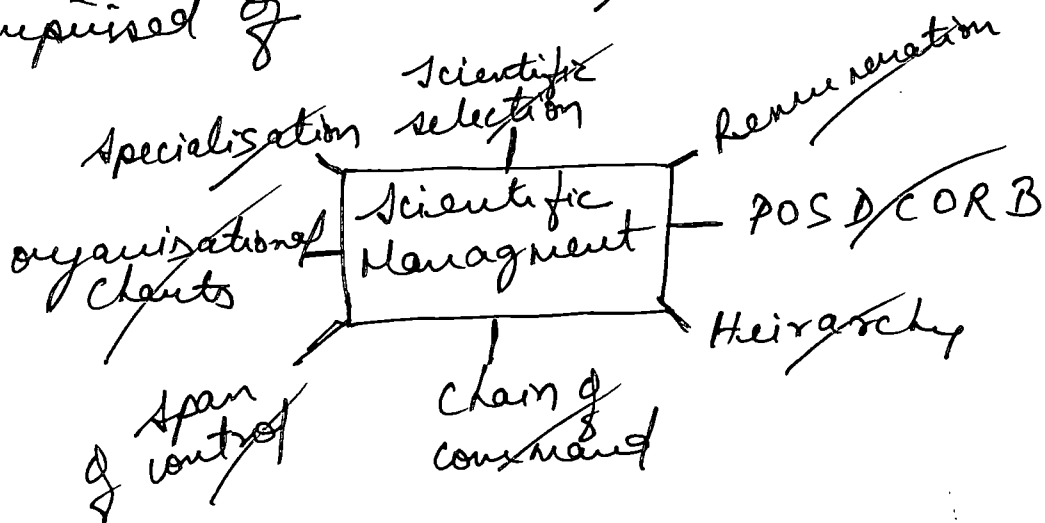 of
Scientific
selection
Remuneration
Specialisation
Scientific
Managment
POSDCORB
organisational
Charts
Heirarchy
Span
of control
Chain of
command